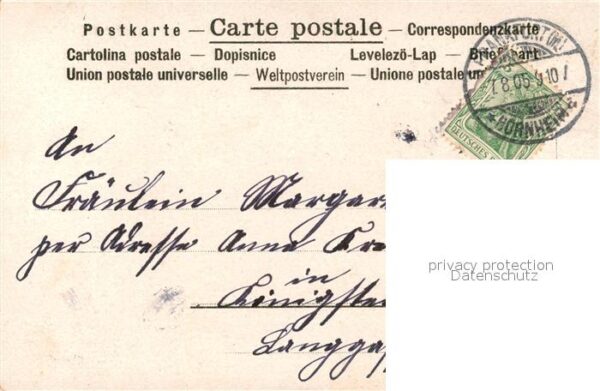 Postkarte — Carte postale — Correspondenzkarte
Cartolina postale — Dopisnice Levelezö-Lap — Briefkaart
Union postale universelle — Weltpostverein — Unione postale un
7.8.05
* BORNHEIM *
DEUTSCHES
An
Fräulein Margar
per Adresse Anna Kre
in
Königste
Langga
privacy protection
Datenschutz